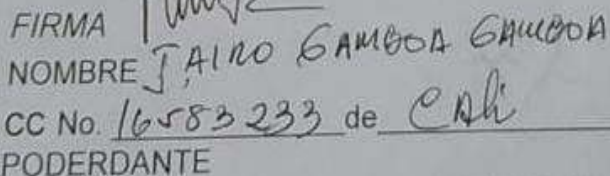 FIRMA
NOMBRE JAIRO GAMBOA GAMBOA
CC No. 16583233 de Cali
PODERDANTE